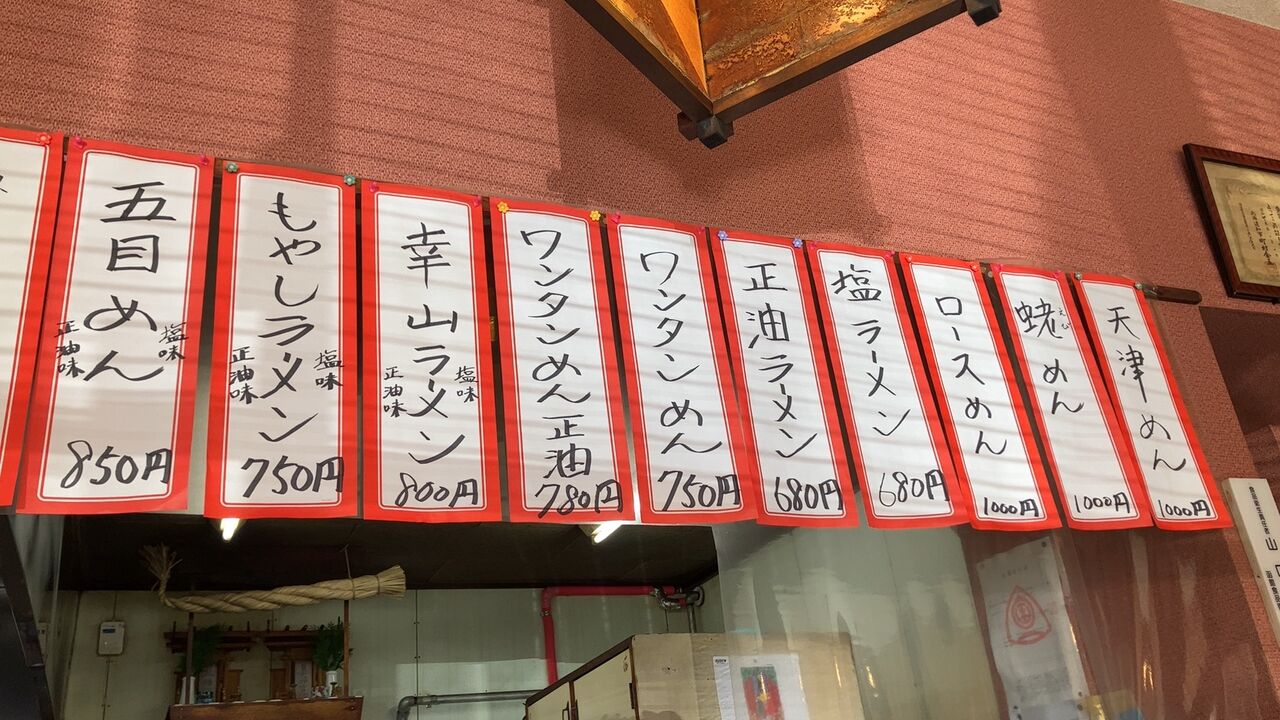 五目めん
塩味
正油味
850円
もやしラーメン
塩味
正油味
750円
幸山ラーメン
塩味
正油味
800円
ワンタンめん正油
780円
ワンタンめん
750円
正油ラーメン
680円
塩ラーメン
680円
ロースめん
1000円
蛯めん
えび
1000円
天津めん
1000円